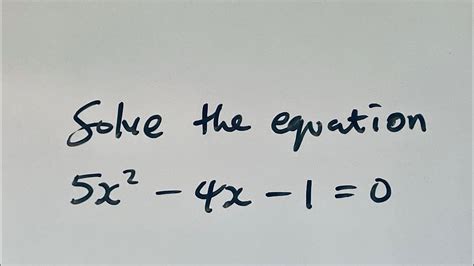 Solve the equation
5x² - 4x - 1 = 0